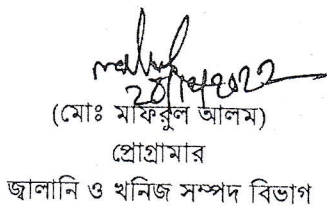 (মোঃ মাফরুল আলম)
প্রোগ্রামার
জ্বালানি ও খনিজ সম্পদ বিভাগ